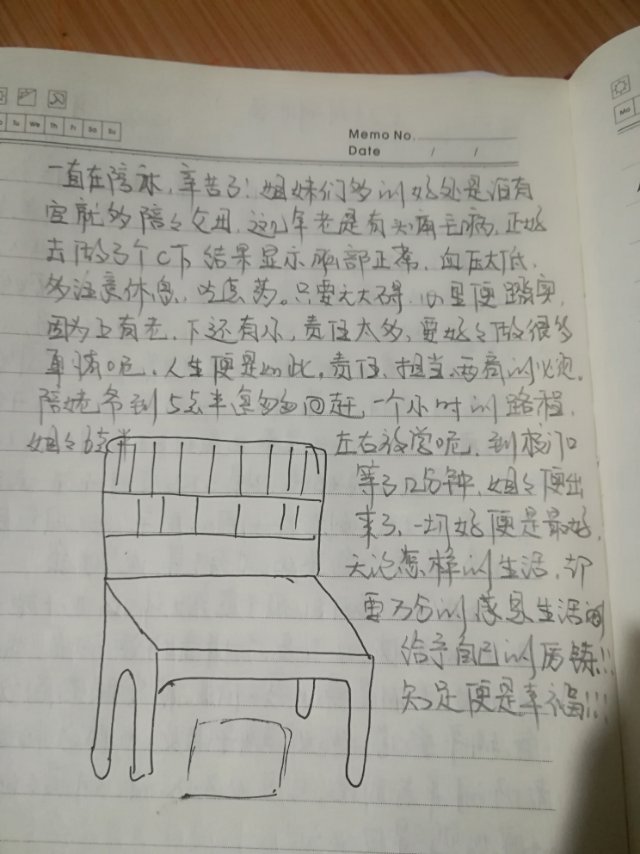 Tu We Th Fr Sa Su
Memo No.
Date / /
Mo
一直在陪你，辛苦了！姐妹们多的好处是活有
宜就多陪陪父母，这几年老是有头两毛病，正好
去做了个CT 结果显示胸部正常，血压太低，
多注意休息，吃点药。只要无大碍，心里便踏实，
因为上有老，下还有小，责任太多，要好好做很多
事情呢，人生便是如此，责任，担当，两肩的必须。
陪姥爷到5点半匆匆回赶，一个小时的路程，
姐姐6点半
左右放学呢，到校门口
等了12分钟，姐姐便出
来了，一切好便是最好，
无论怎样的生活，都
要万分的感恩生活
给予自己的厉练！！
知足便是幸福！！！